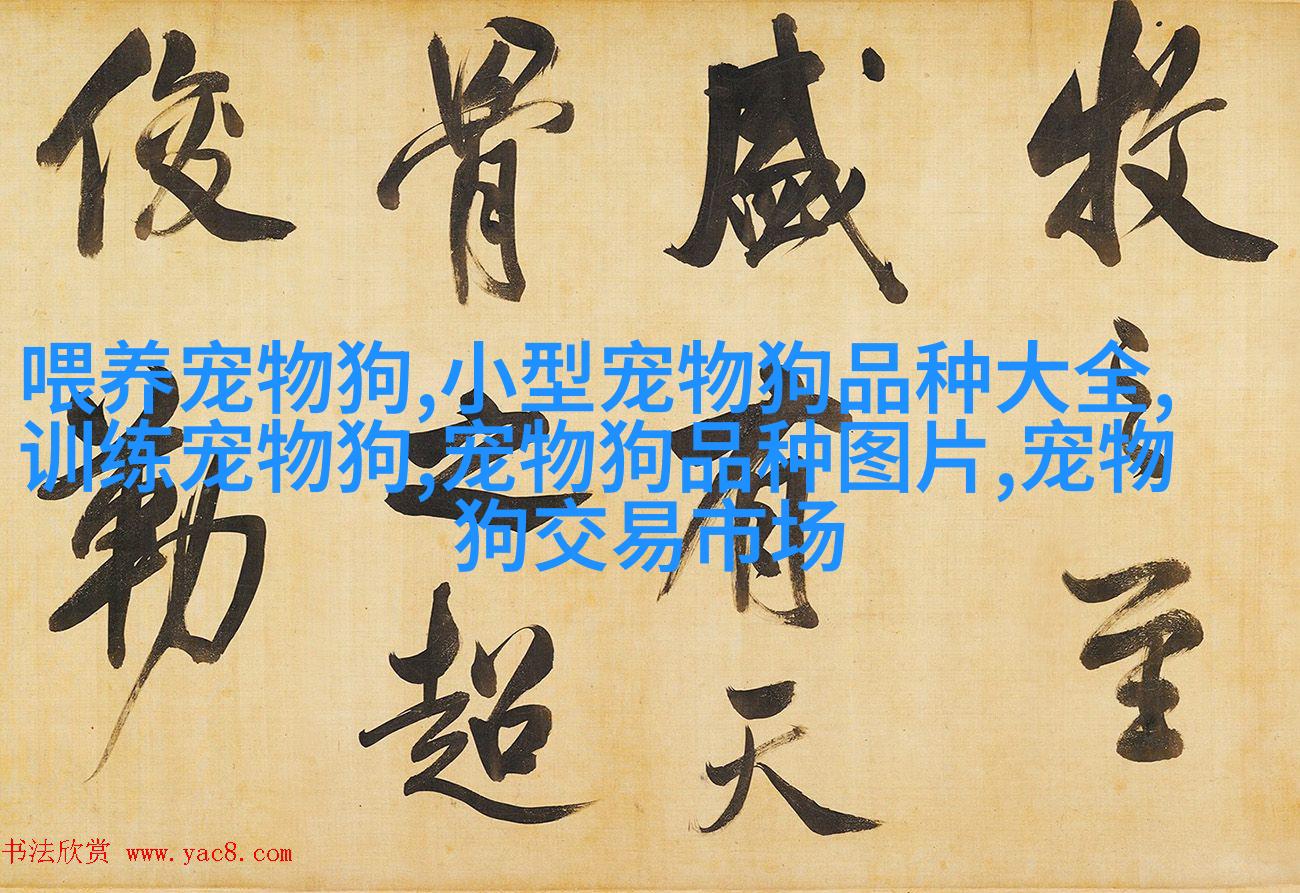 喂养宠物狗,小型宠物狗品种大全,
训练宠物狗,宠物狗品种图片,宠物
狗交易市场
牧之至
盛有天
骨之超
俊
书法欣赏 www.yac8.com